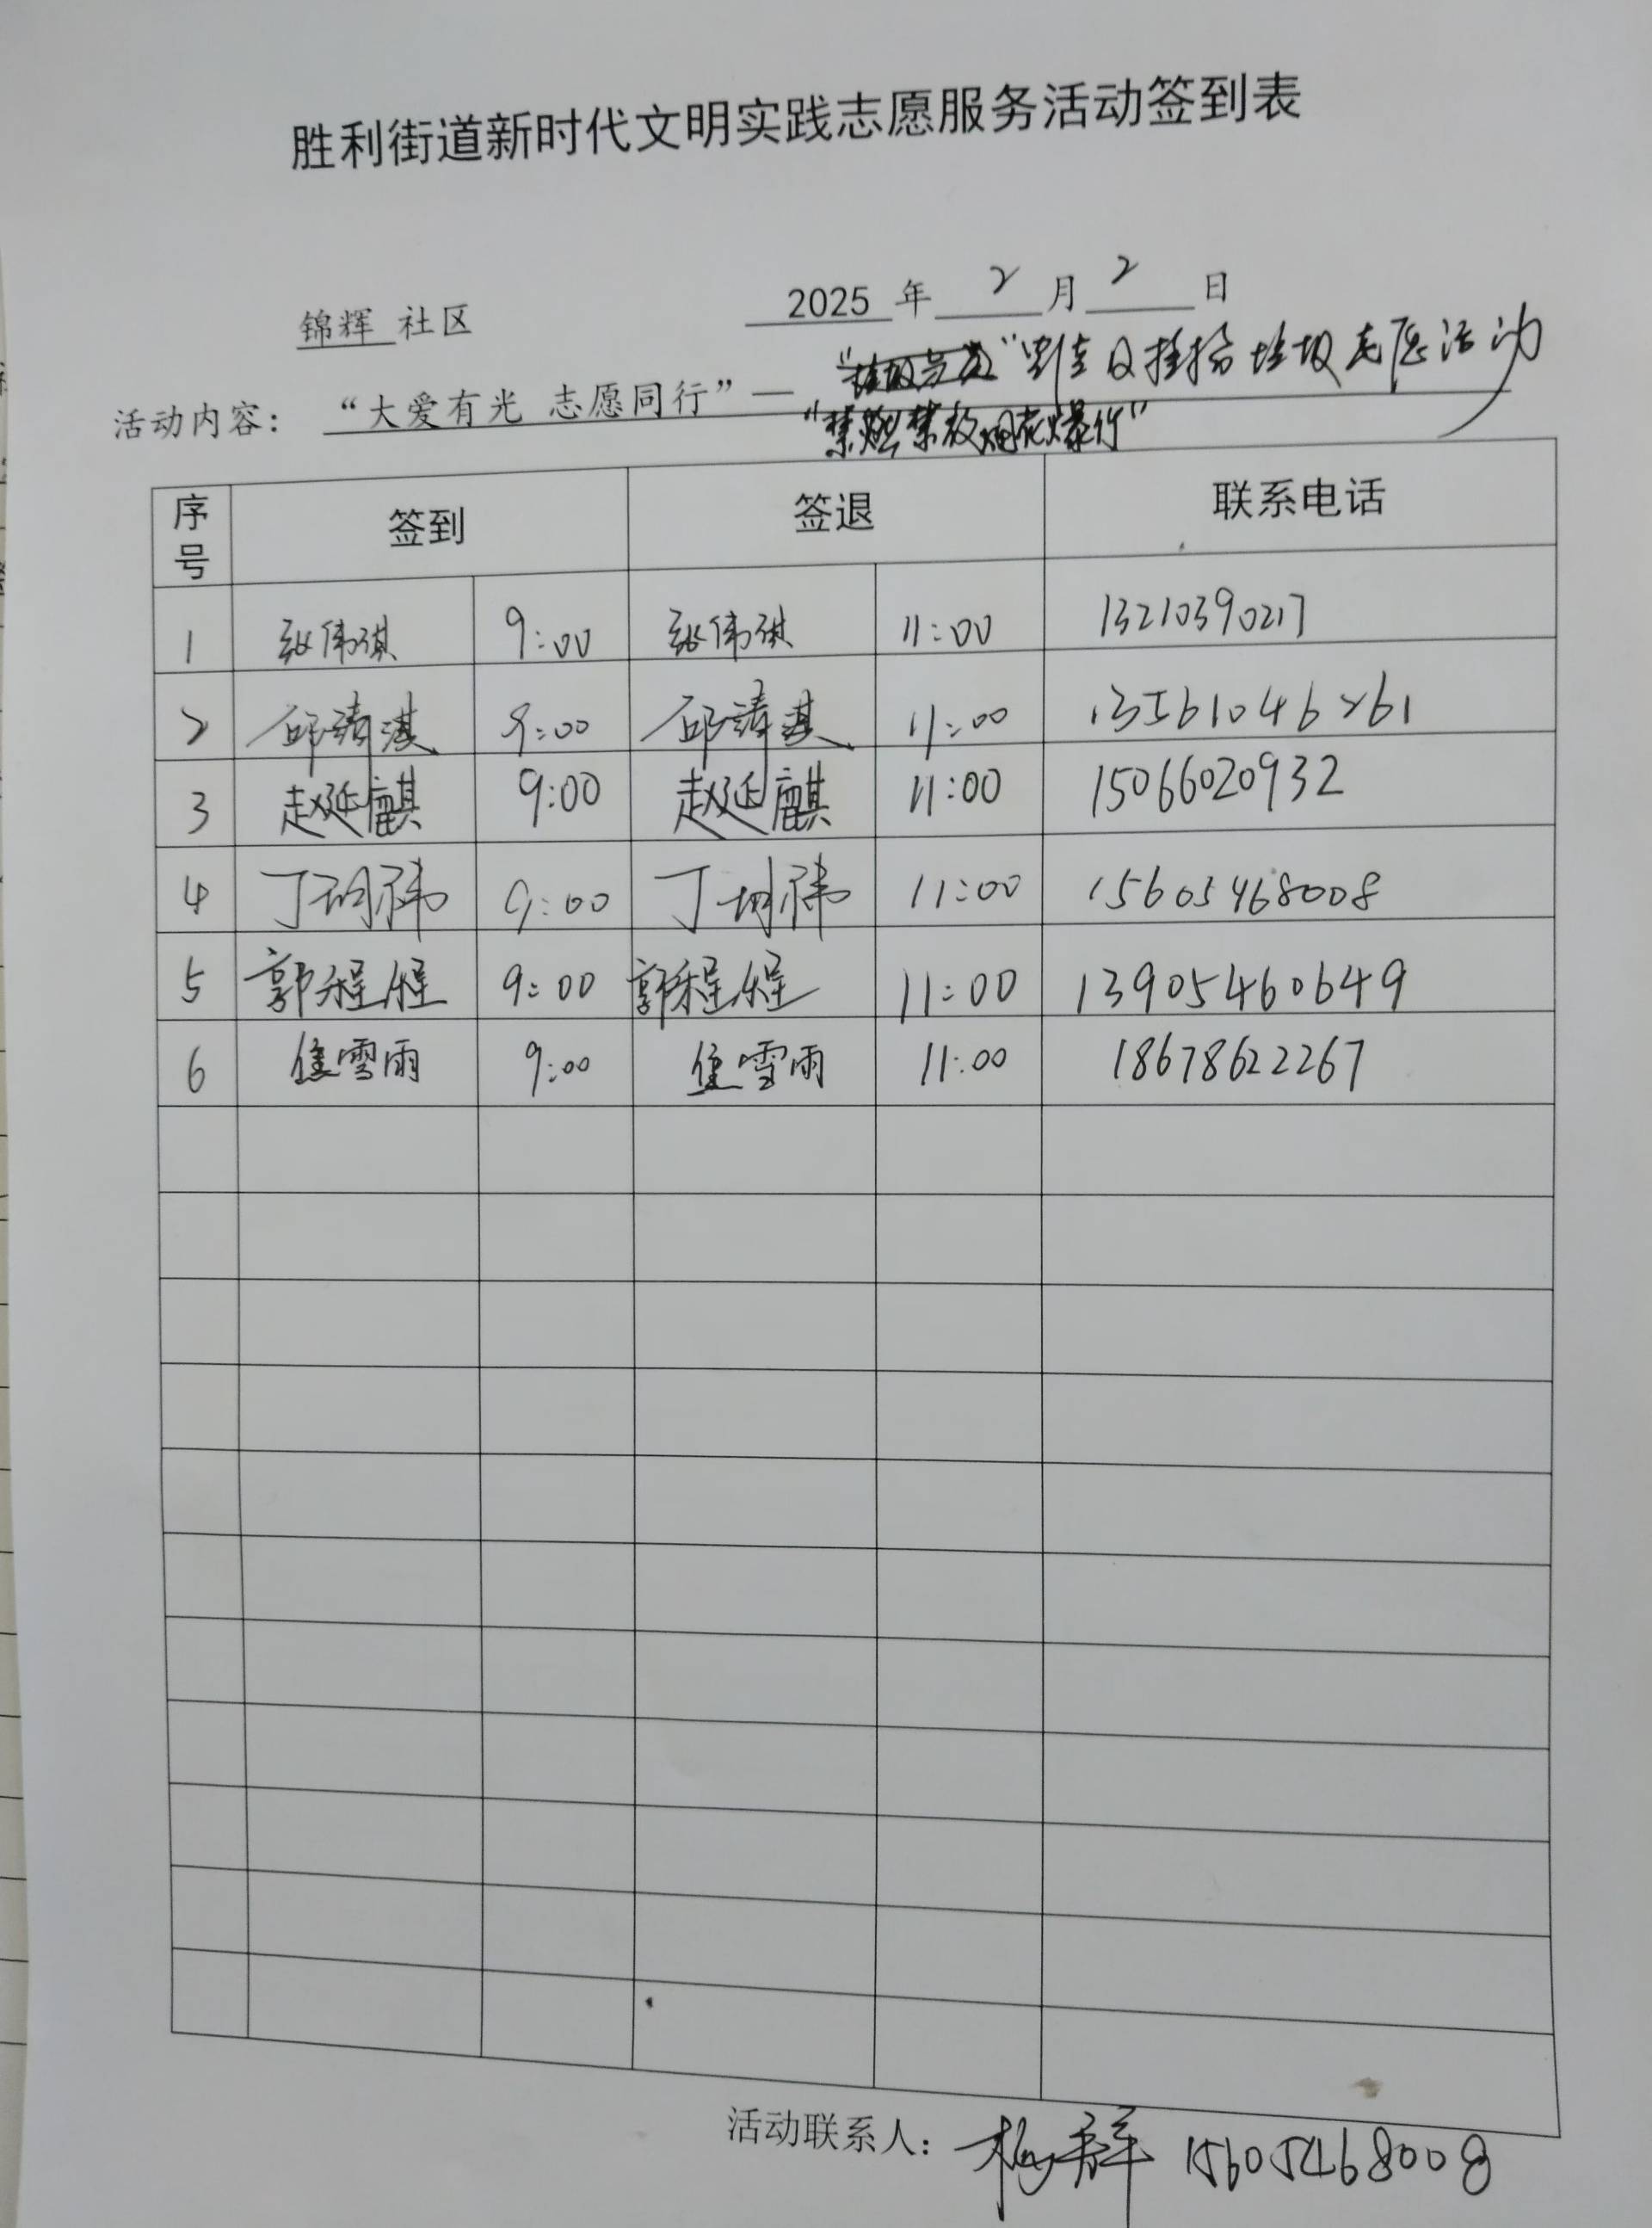 胜利街道新时代文明实践志愿服务活动签到表
锦辉 社区 2025 年 2 月 2 日
活动内容： “大爱有光 志愿同行”— 捡拾垃圾志愿活动
“禁燃禁放烟花爆竹”
序号 签到 签退 联系电话
1 张伟琪 9:00 张伟琪 11:00 13210390217
2 邱靖淇 9:00 邱靖淇 11:00 13561046261
3 赵延麒 9:00 赵延麒 11:00 15066020932
4 丁玥祎 9:00 丁玥祎 11:00 15605468008
5 郭程程 9:00 郭程程 11:00 13905460649
6 焦雪雨 9:00 焦雪雨 11:00 18678622267
活动联系人： 梅群 15605468008